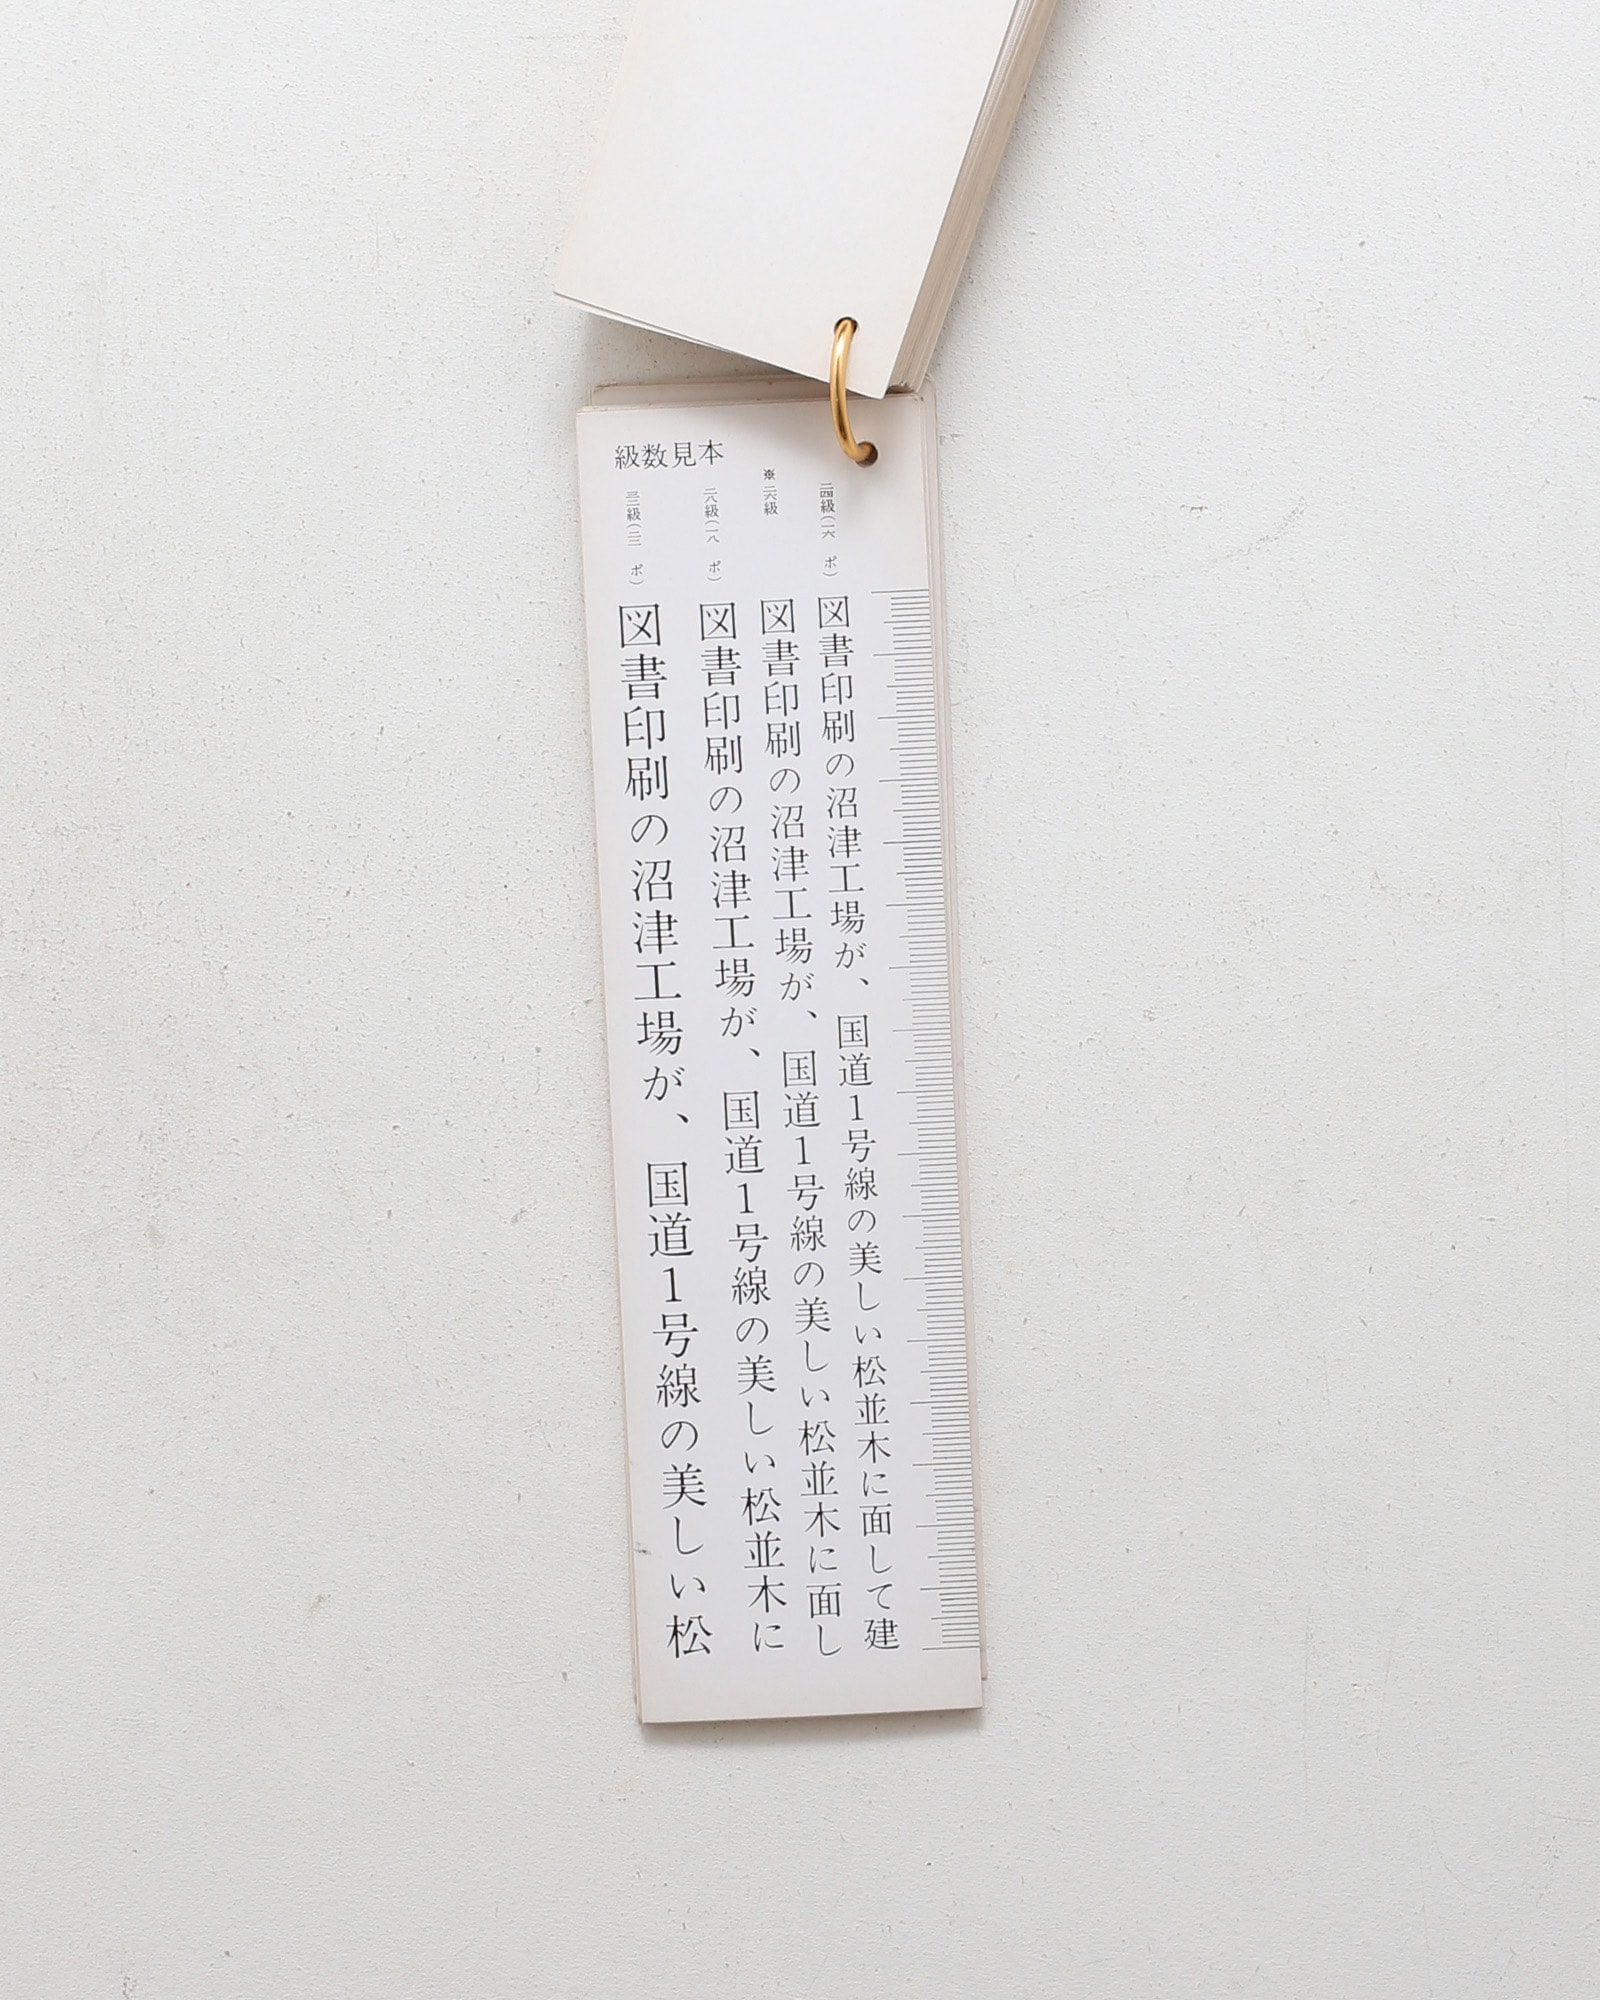 級数見本
二四級(一六 ポ)
図書印刷の沼津工場が、国道1号線の美しい松並木に面して建
※二六級
図書印刷の沼津工場が、国道1号線の美しい松並木に面し
二八級(一八 ポ)
図書印刷の沼津工場が、国道1号線の美しい松並木に
三二級(二二 ポ)
図書印刷の沼津工場が、国道1号線の美しい松